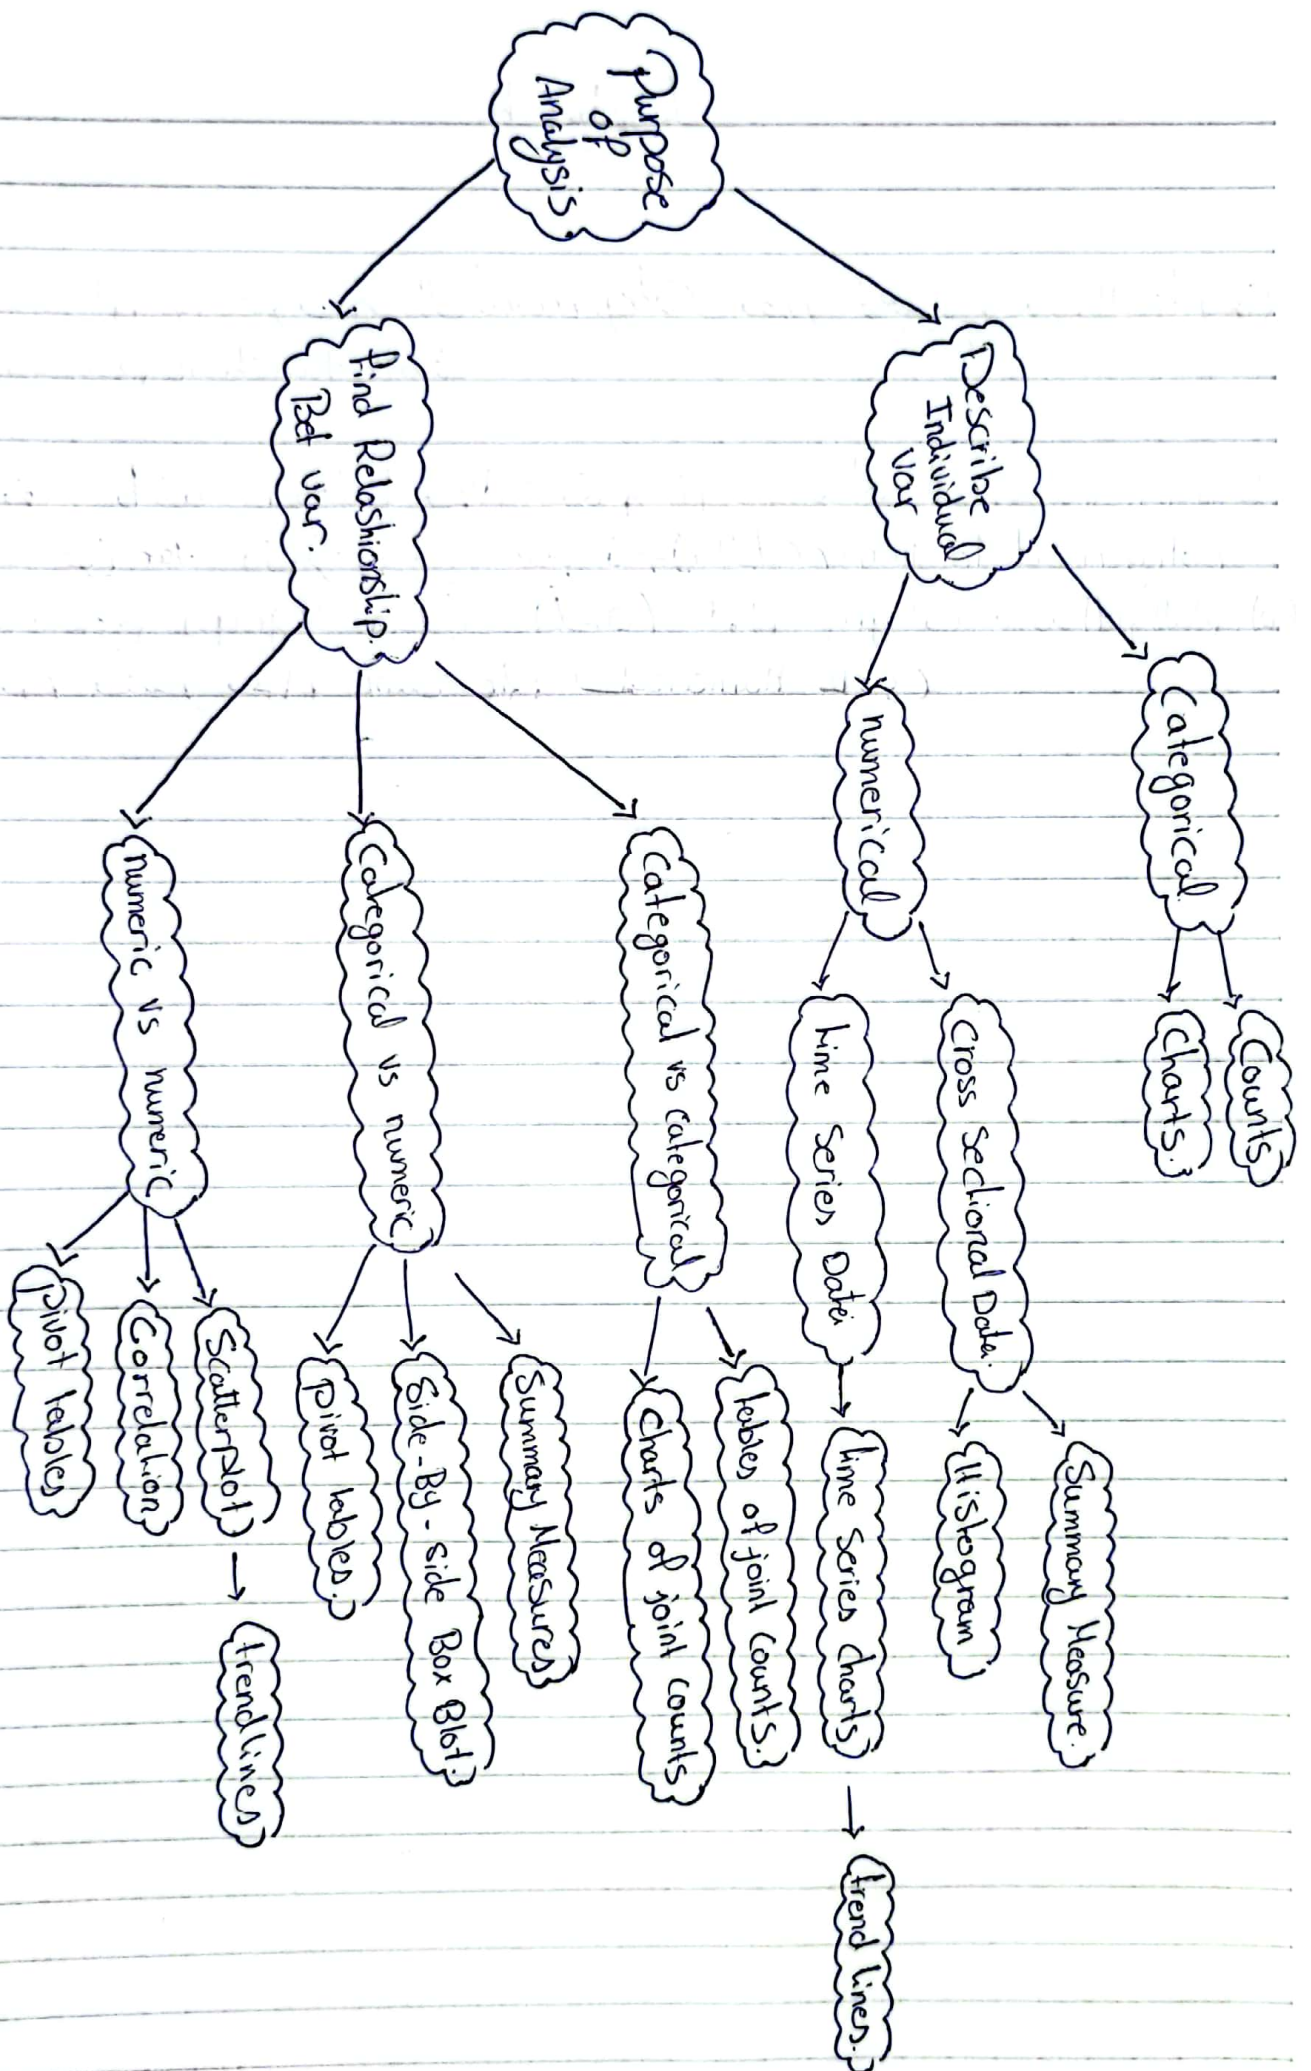 Purpose
of
Analysis
Describe
Individual
var
Categorical
Counts
Charts.
numerical
Cross Sectional Data.
Summary Measure.
Histogram
time series Data
time series charts
trend lines.
Find Relashionship.
Bet var.
Categorical vs categorical
tables of joint counts.
Charts of joint counts
Categorical vs numeric
Summary Measures
Side-By-side Box Blot.
pivot tables.
numeric vs numeric
Scatterplot
trendlines
Correlation
pivot tables